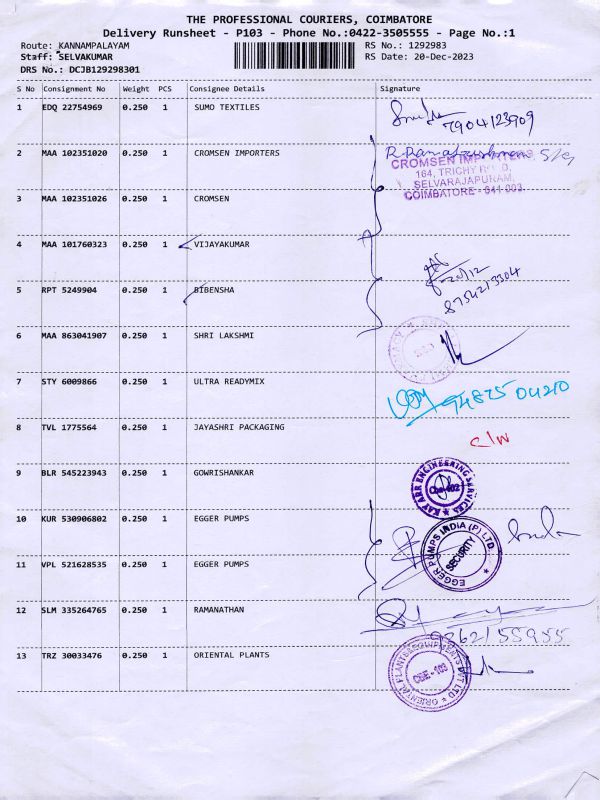 THE PROFESSIONAL COURIERS, COIMBATORE
Delivery Runsheet - P103 - Phone No.:0422-3505555 - Page No.:1
Route: KANNAMPALAYAM RS No.: 1292983
Staff: SELVAKUMAR RS Date: 20-Dec-2023
DRS No.: DCJB129298301
S No Consignment No Weight PCS Consignee Details Signature
1 EDQ 22754969 0.250 1 SUMO TEXTILES
7904123909
2 MAA 102351020 0.250 1 CROMSEN IMPORTERS
CROMSEN IMPORTERS
164, TRICHY ROAD,
SELVARAJAPURAM,
COIMBATORE - 641 003.
3 MAA 102351026 0.250 1 CROMSEN
4 MAA 101760323 0.250 1 VIJAYAKUMAR
20/12
8754213304
5 RPT 5249904 0.250 1 BIBENSHA
6 MAA 863041907 0.250 1 SHRI LAKSHMI
7 STY 6009866 0.250 1 ULTRA READYMIX
94875 04210
8 TVL 1775564 0.250 1 JAYASHRI PACKAGING
C/W
9 BLR 545223943 0.250 1 GOWRISHANKAR
KAY ARR ENGINEERING SERVICES
Cbe-402
10 KUR 530906802 0.250 1 EGGER PUMPS
EGGER PUMPS INDIA (P) LTD.
SECURITY
11 VPL 521628535 0.250 1 EGGER PUMPS
12 SLM 335264765 0.250 1 RAMANATHAN
9362155955
13 TRZ 30033476 0.250 1 ORIENTAL PLANTS
ORIENTAL PLANTS EQUIPMENTS PVT LTD
CBE - 103